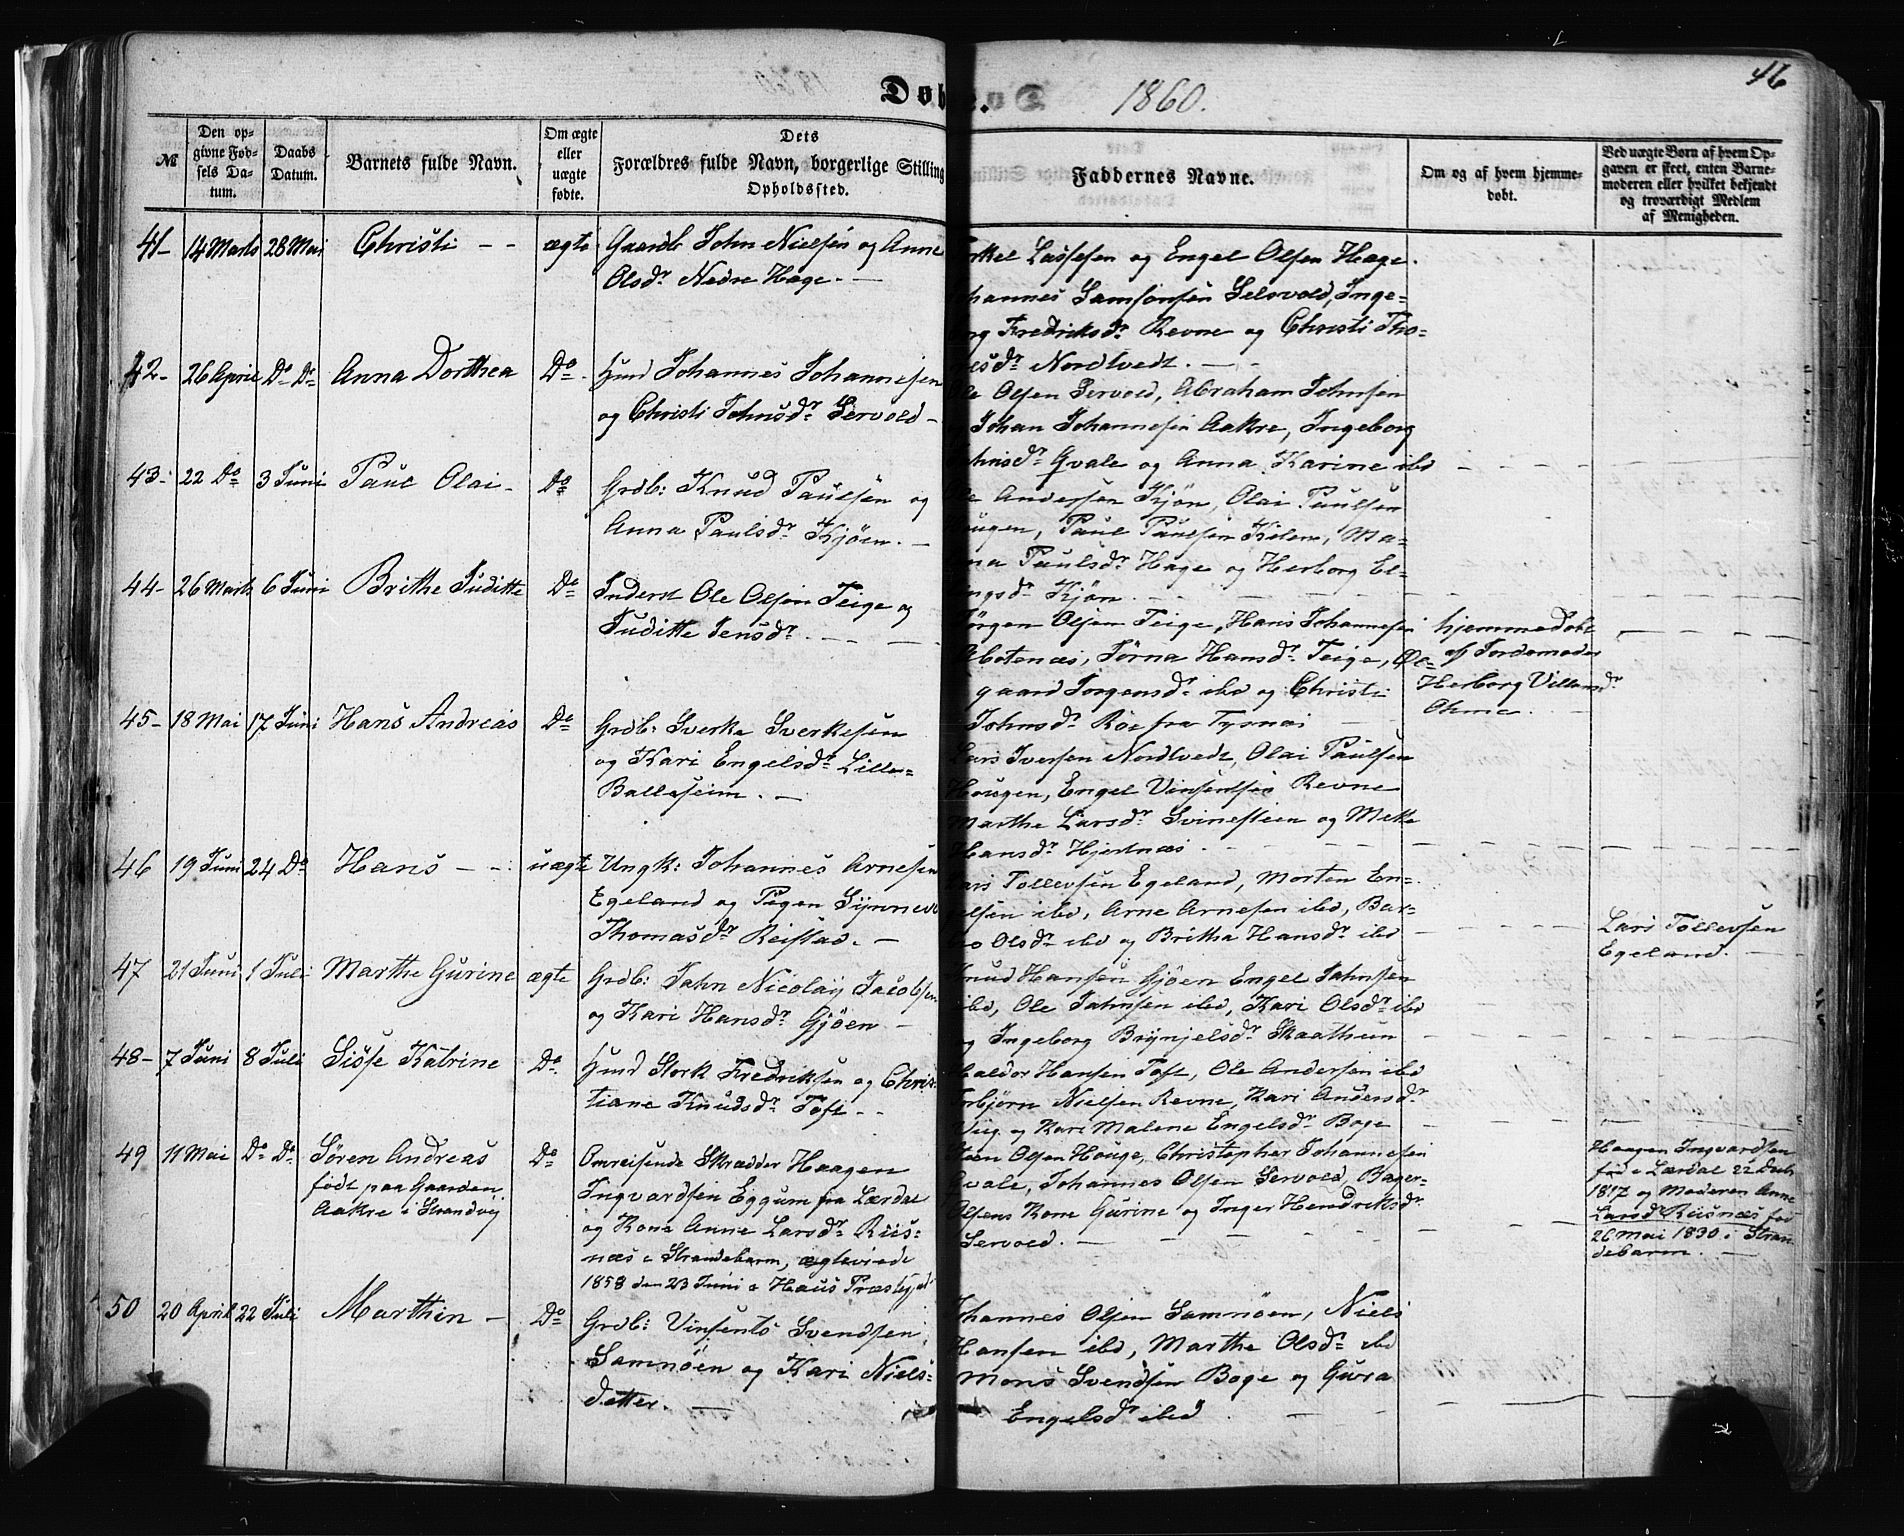 46
Døbte. 1860.
№
Den opgivne Fødsels Datum.
Daabs Datum.
Barnets fulde Navn.
Om ægte eller uægte fødte.
Dets Forældres fulde Navn, borgerlige Stilling Opholdssted.
Faddernes Navne.
Om og af hvem hjemmedøbt.
Ved uægte Børn af hvem Opgaven er skeet, enten Barnemoderen eller hvilket bekjendt og troværdigt Medlem af Menigheden.
41- 14 Marts 28 Mai Christi - - ægte Gaardb John Nielsen og Anne
Olsdr. Nedre Hage. -
Lassesen og Engel Olsen Hage.
Johannes Samsonsen Selsvold, Inge-
borg Fredriksdr Revne og Christi Tho-
mesdr Nordtvedt. -
42- 26 April Do Do Anna Dorthea Do Huud Johannes Johannesen
og Christi Johnsdr Servold -
Ole Olsen Servold, Abraham Johnsen
Johan Johannesen Aakre, Ingeborg
Johnsdr Qvale og Anna Karine ibd
43- 22 Do 3 Juni Paul Olai - Do Grdb: Knud Paulsen og
Anna Paulsdr Kjøen. -
Ole Andersen Kjøn, Olai Paulsen
Hougen, Paul Paulsen Kilene, Ma-
Paulsdr Hage og Herborg El-
ingsdr Kjøn.
44- 26 Marts 6 Juni Brithe Juditte Do Inderst Ole Olsen Teige og
Juditte Jensdr. -
Jørgen Olsen Teige, Hans Johannesen
Abotenæs, Jørna Hansdr Teige, Øl-
gaard Jørgensdr ibd og Christi
Johnsdr Røe fra Tysnæs
hjemmedøbt
af Jordemoder
Herborg Villumsdr
Ohme.
45- 18 Mai 17 Juni Hans Andreas Do Grdb: Sverke Sverkesen
og Kari Engelsdr Lille-
Balleseim. -
Lars Iversen Nordtvedt, Olai Paulsen
Hougen, Engel Vinsentsen Revne
Marthe Larsdr Svinesteen og Mette
Hansdr Hjertnæs
46 19 Juni 24 Do Hans - - uægte Ungk: Johannes Arnesen
Egeland og Pigen Synneve
Thomasdr Reistad. -
Lars Tollevsen Egeland, Morten En-
gelsen ibd, Arne Arnesen ibd, Bar-
bro Olsdr ibd og Britha Hansdr ibd
Lars Tollevsen
Egeland. -
47 21 Juni 1 Juli Marthe Gurine ægte Grdb: Jahn Nicolay Jacobsen
og Kari Hansdr Gjøen -
Knud Hansen Gjøen Engel Jahnsen
ibd, Ole Jahnsen ibd, Kari Olsdr ibd
og Ingeborg Brynjelsdr Skaatheim
48- 7 Juni 8 Juli Sisse Katrine Do. Huud Stork Fredriksen og Chris-
tiane Knudsdr Toft. -
Haldor Hansen Toft, Ole Andersen ibd
Torbjørn Nielsen Revne, Kari Andersdr
Vig og Kari Malene Engelsdr Boge
49 11 Mai Do Do Søren Andreas
født paa Gaarden
Aakre i Strandvig
Do Omreisende Skrædder Haagen
Ingvardsen Eggum fra Lærdal
og Kone Anne Larsdr Riis-
næs i Strandebarm, ægteviede
1858 den 23 Juni i Haus Præstegjeld
Steen Olsen Houge, Christopher Johannesen
Qvale, Johannes Olsen Servold, Bager
Olsens Kone Gurine og Inger Hendriksdr
Servold. -
Haagen Ingvardsen
fød i Lærdal 22 Decb
1817 og Moderen Anne
Larsdr Riisnæs fød
26 Mai 1830 i Stran-
debarm.
50 20 April 22 Juli Marthin - Do Grdb: Vinsents Svendsen
Samnøen og Kari Niels-
datter. -
Johannes Olsen Samnøen, Niels
Hansen ibd, Marthe Olsdr ibd
Mons Svendsen Boge og Gura
Engelsdr ibd